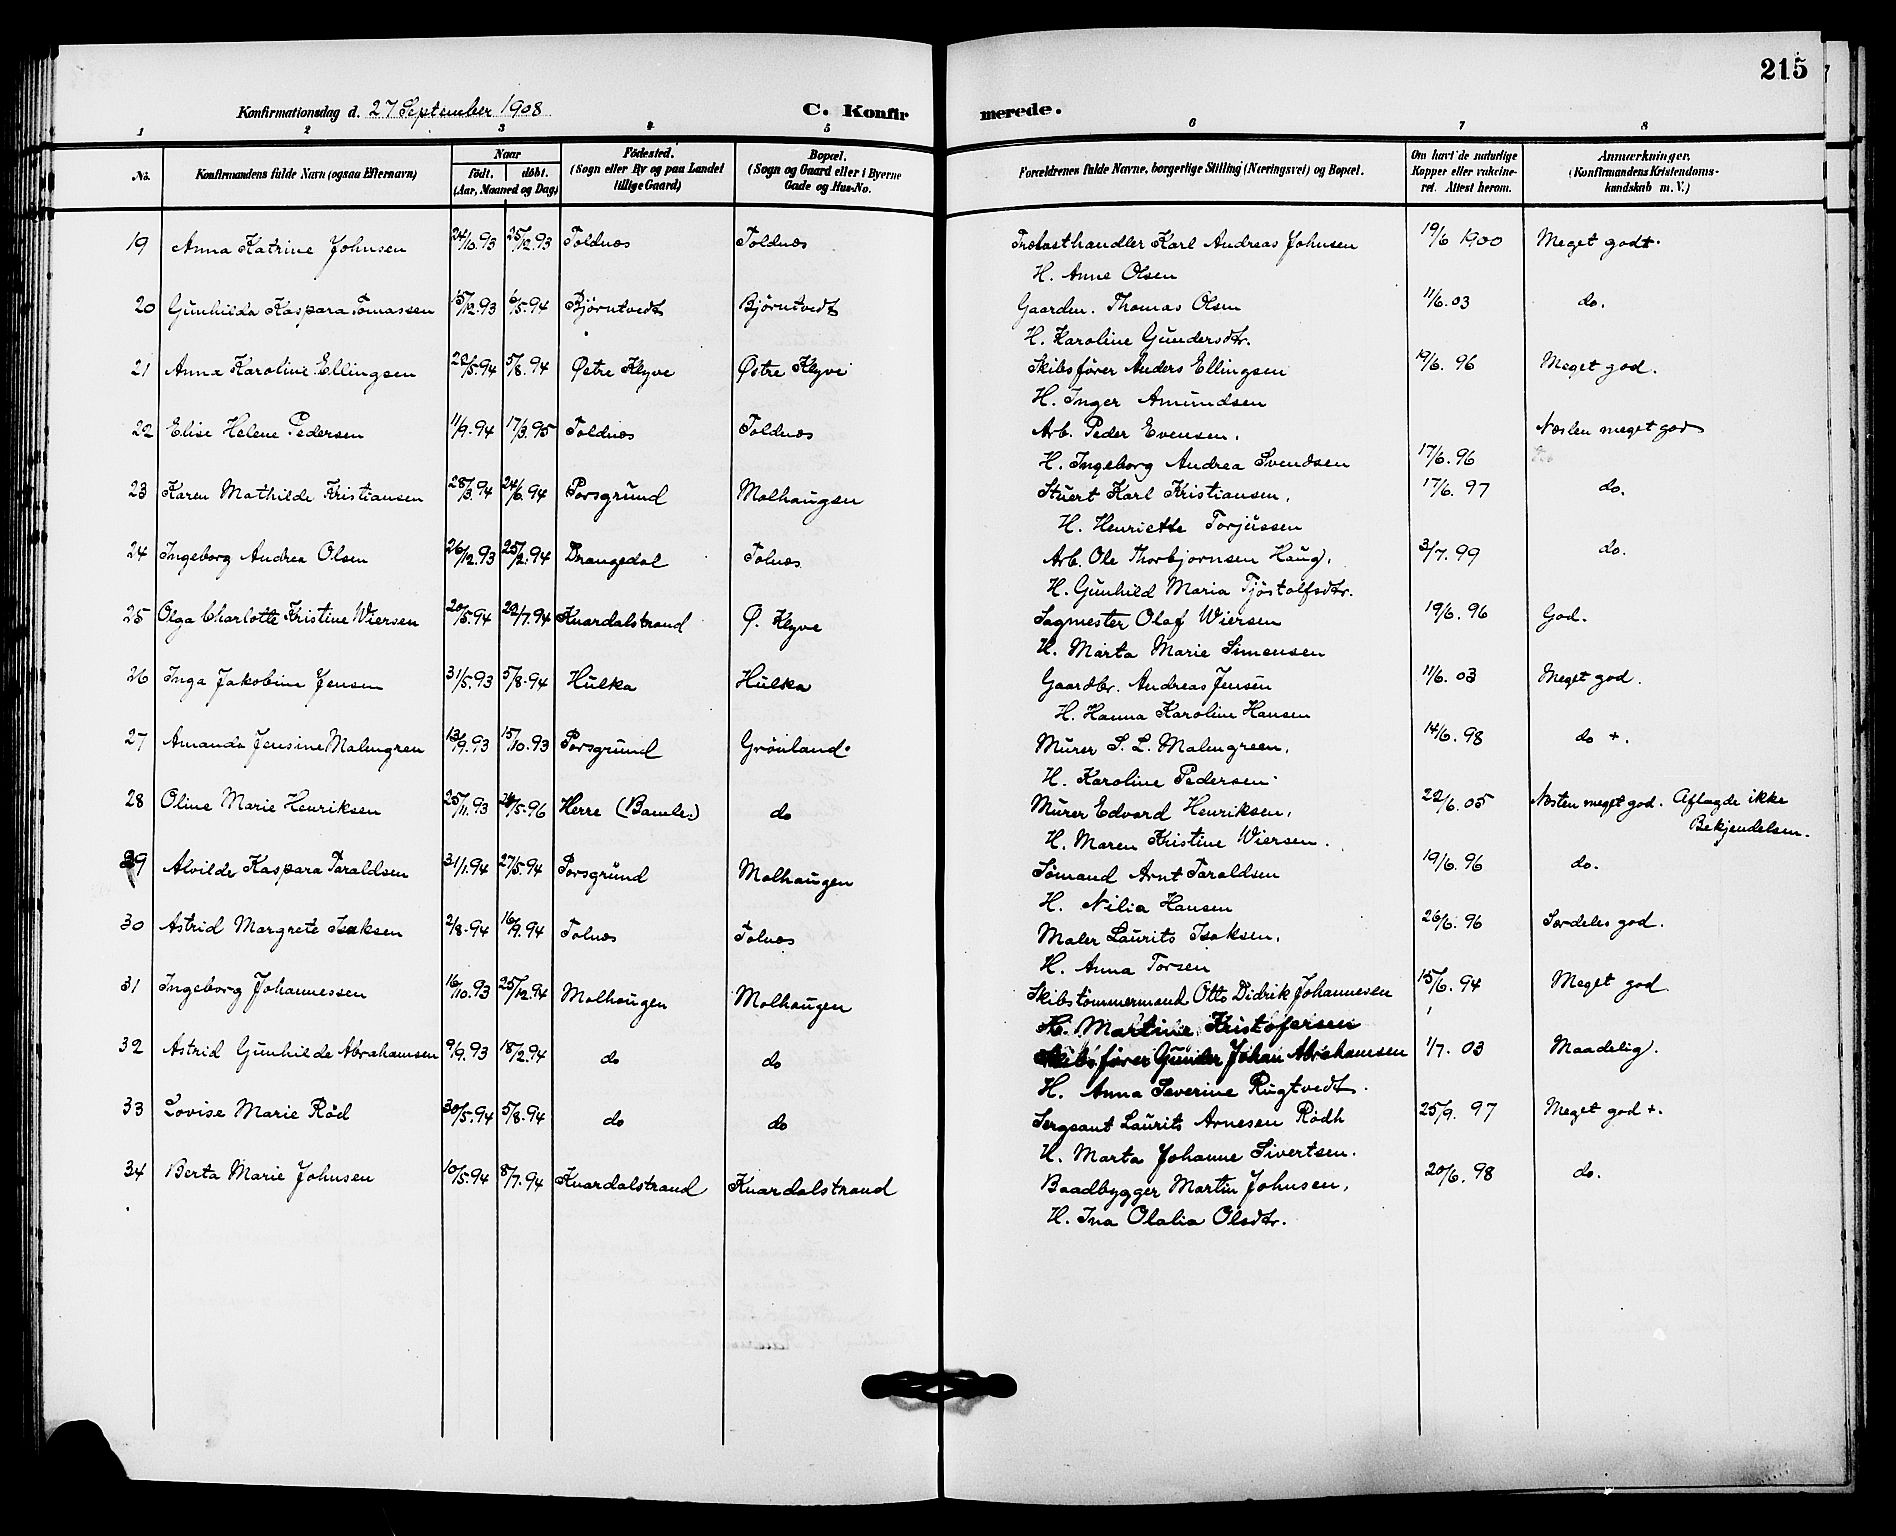 215
Konfirmationsdag d. 27 September 1908
C. Konfirmerede.
1 2 3 4 5 6 7 8
No.
Konfirmandens fulde Navn (ogsaa Efternavn)
Naar
født. døbt.
(Aar, Maaned og Dag)
Fødested.
(Sogn eller By og paa Landet
tillige Gaard)
Bopæl.
(Sogn og Gaard eller i Byerne
Gade og Hus-No.
Forældrenes fulde Navne, borgerlige Stilling (Næringsvei) og Bopæl.
Om havt de naturlige
Kopper eller vakcine-
ret. Attest herom.
Anmærkninger.
(Konfirmandens Kristendoms-
kundskab m. V.)
19 Anna Katrine Johnsen 24/10.93 25/12.93 Toldnæs Toldnæs Trælasthandler Karl Andreas Johnsen 19/6 1900 Meget godt.
H. Anne Olsen
20 Gunhilda Kaspara Tomassen 15/12.93 6/5.94 Bjørntvedt Bjørntvedt Gaarden. Thomas Olsen 11/6.03 do.
H. Karoline Gundersdtr.
21 Anna Karoline Ellingsen 28/5.94 5/8.94 Østre Klyve Østre Klyve Skibsfører Anders Ellingsen 19/6. 96 Meget god.
H. Inger Amundsen
22 Elise Helene Pedersen 11/9.94 17/3.95 Toldnæs Toldnæs Arb. Peder Evensen. Næsten meget god
H. Ingeborg Andrea Svendsen 17/6.96
23 Karen Mathilde Kristiansen 28/3.94 24/6.94 Porsgrund Molhaugen Stuert Karl Kristiansen, 17/6. 97 do.
H. Henriette Torjussen
24 Ingeborg Andrea Olsen 26/12.93 25/2.94 Drangedal Tolnæs Arb. Ole Thorbjørnsen Haug, 3/7.99 do.
H. Gunhild Maria Tjøstolfsdtr.
25 Olga Charlotte Kristine Wiersen 20/5.94 22/7.94 Knardalstrand Ø. Klyve Sagmester Olaf Wiersen 19/6.96 God.
H. Marta Marie Simensen
26 Inga Jakobine Jensen 31/5.93 5/8.94 Hulka Hulka Gaardbr. Andreas Jensen 11/6. 03 Meget god.
H. Hanna Karoline Hansen
27 Amanda Jensine Malmgren 13/9.93 15/10.93 Porsgrund Grønland. Murer S. L. Malmgreen, 14/6.98 do +.
H. Karoline Pedersen.
28 Oline Marie Henriksen 25/11.93 24/5.96 Herre (Bamle.) do Murer Edvard Henriksen, 22/6.05 Næsten meget god. Aflagde ikke
Bekjendelsen.
H. Maren Kristine Wiersen.
29 Alvilde Kaspara Taraldsen 31/1.94 27/5.94 Porsgrund Molhaugen Sømand Arnt Taraldsen 19/6.96 do.
H. Nilia Hansen
30 Astrid Margrete Isaksen 2/8.94 16/9.94 Tolnæs Tolnæs Maler Laurits Isaksen, 26/6.96 Særdeles god.
H. Anna Torsen
31 Ingeborg Johannessen 16/10.93 25/12.94 Molhaugen Molhaugen Skibstømmermand Otto Didrik Johannesen 15/6. 94 Meget god
H. Martine Kristofersen
32 Astrid Gunhilde Abrahamsen 9/9.93 18/2.94 do do Skibsfører Gunder Johan Abrahamsen 1/7. 03 Maadelig.
H. Anna Severine Rugtvedt.
33 Lovise Marie Rød 30/5.94 5/8.94 do do Sergeant Laurits Arnesen Rødh 25/9. 97 Meget god +.
H. Marta Johanne Sivertsen.
34 Berta Marie Johnsen 10/5.94 8/7.94 Knardalstrand Knardalstrand Baadbygger Martin Johnsen, 20/6.98 do.
H. Ina Olalia Olsdtr.